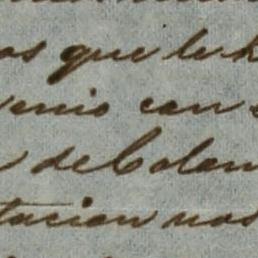 os que le h
venio con
de Colom
tacion nos